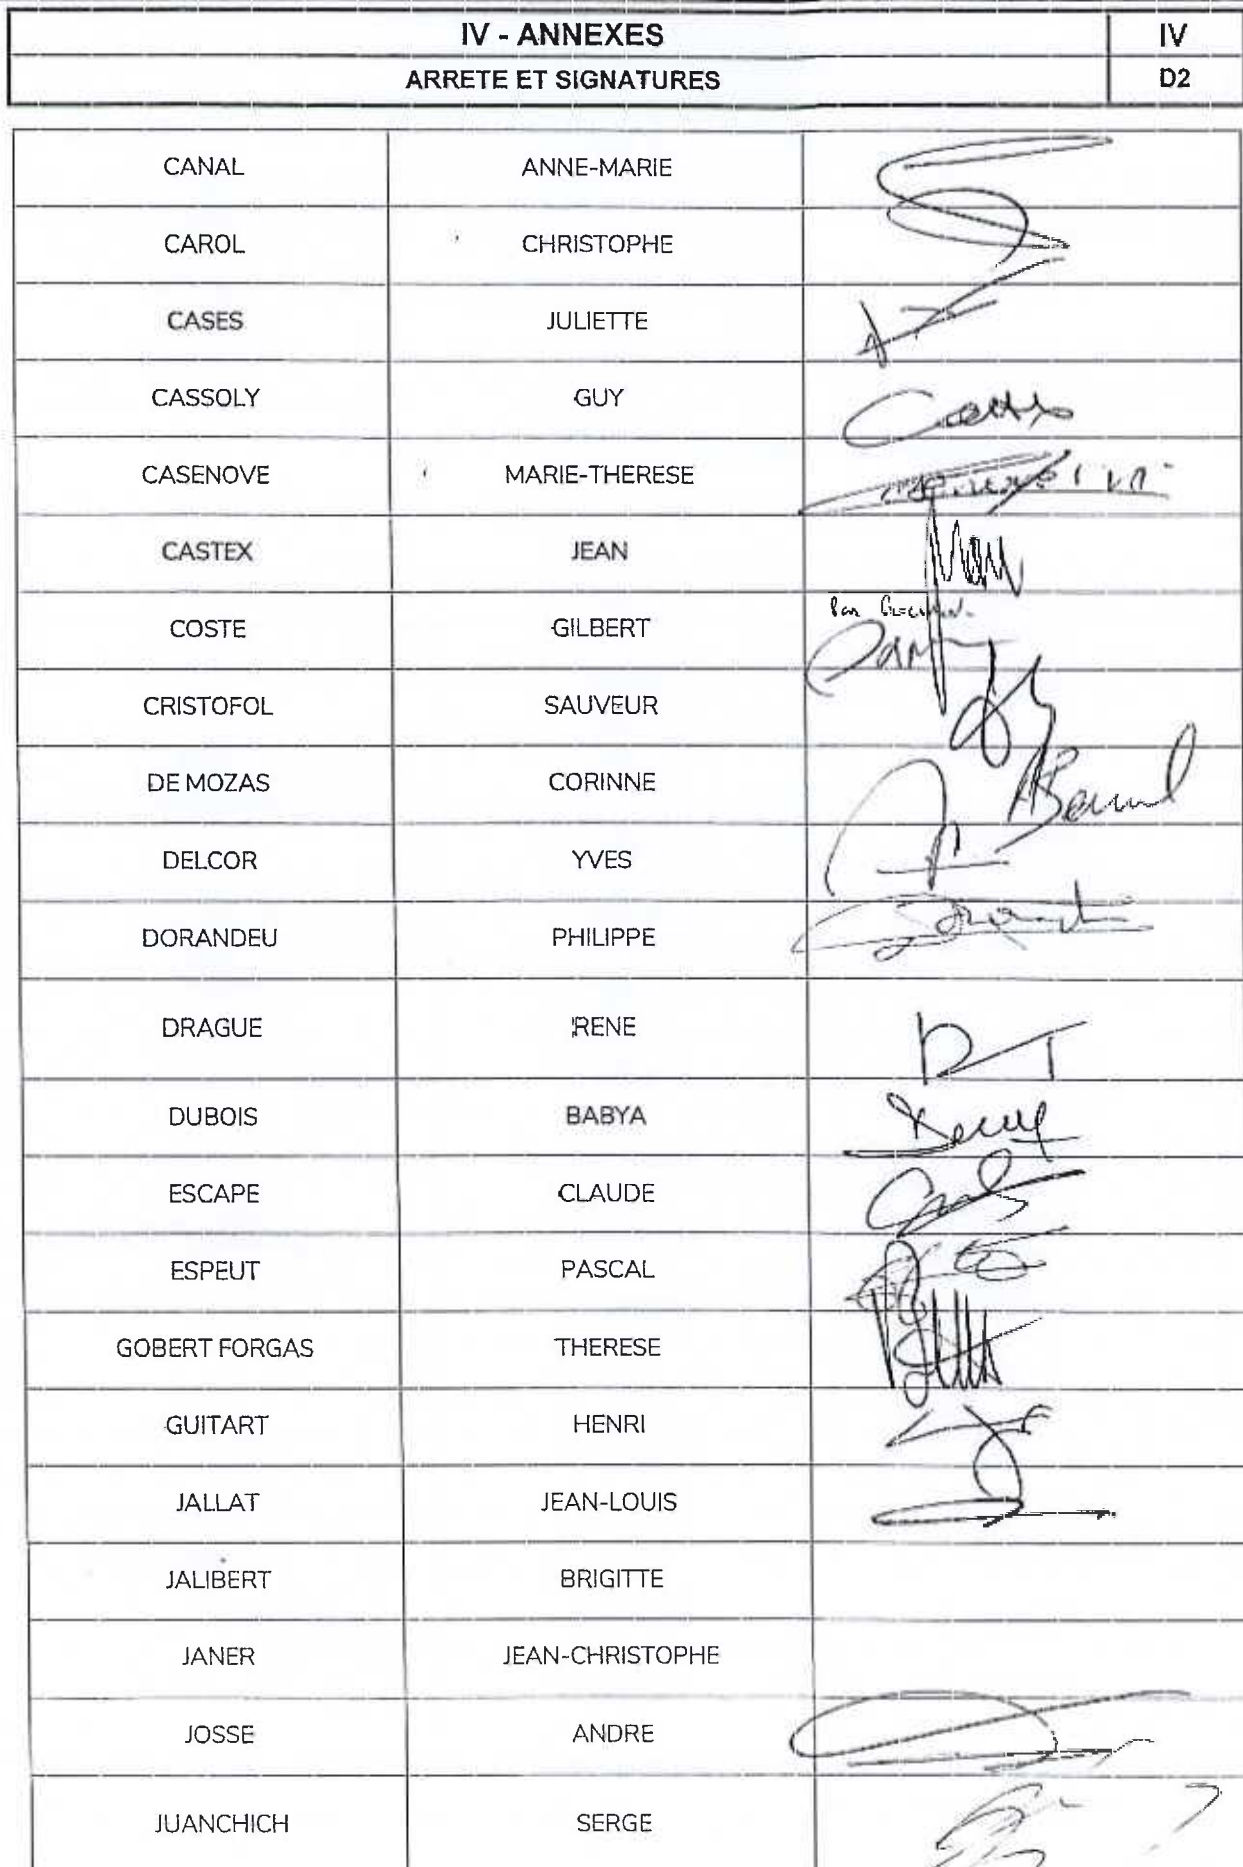 IV - ANNEXES IV
ARRETE ET SIGNATURES D2
CANAL ANNE-MARIE
CAROL CHRISTOPHE
CASES JULIETTE
CASSOLY GUY
CASENOVE MARIE-THERESE
CASTEX JEAN
COSTE GILBERT
CRISTOFOL SAUVEUR
DE MOZAS CORINNE
DELCOR YVES
DORANDEU PHILIPPE
DRAGUE RENE
DUBOIS BABYA
ESCAPE CLAUDE
ESPEUT PASCAL
GOBERT FORGAS THERESE
GUITART HENRI
JALLAT JEAN-LOUIS
JALIBERT BRIGITTE
JANER JEAN-CHRISTOPHE
JOSSE ANDRE
JUANCHICH SERGE